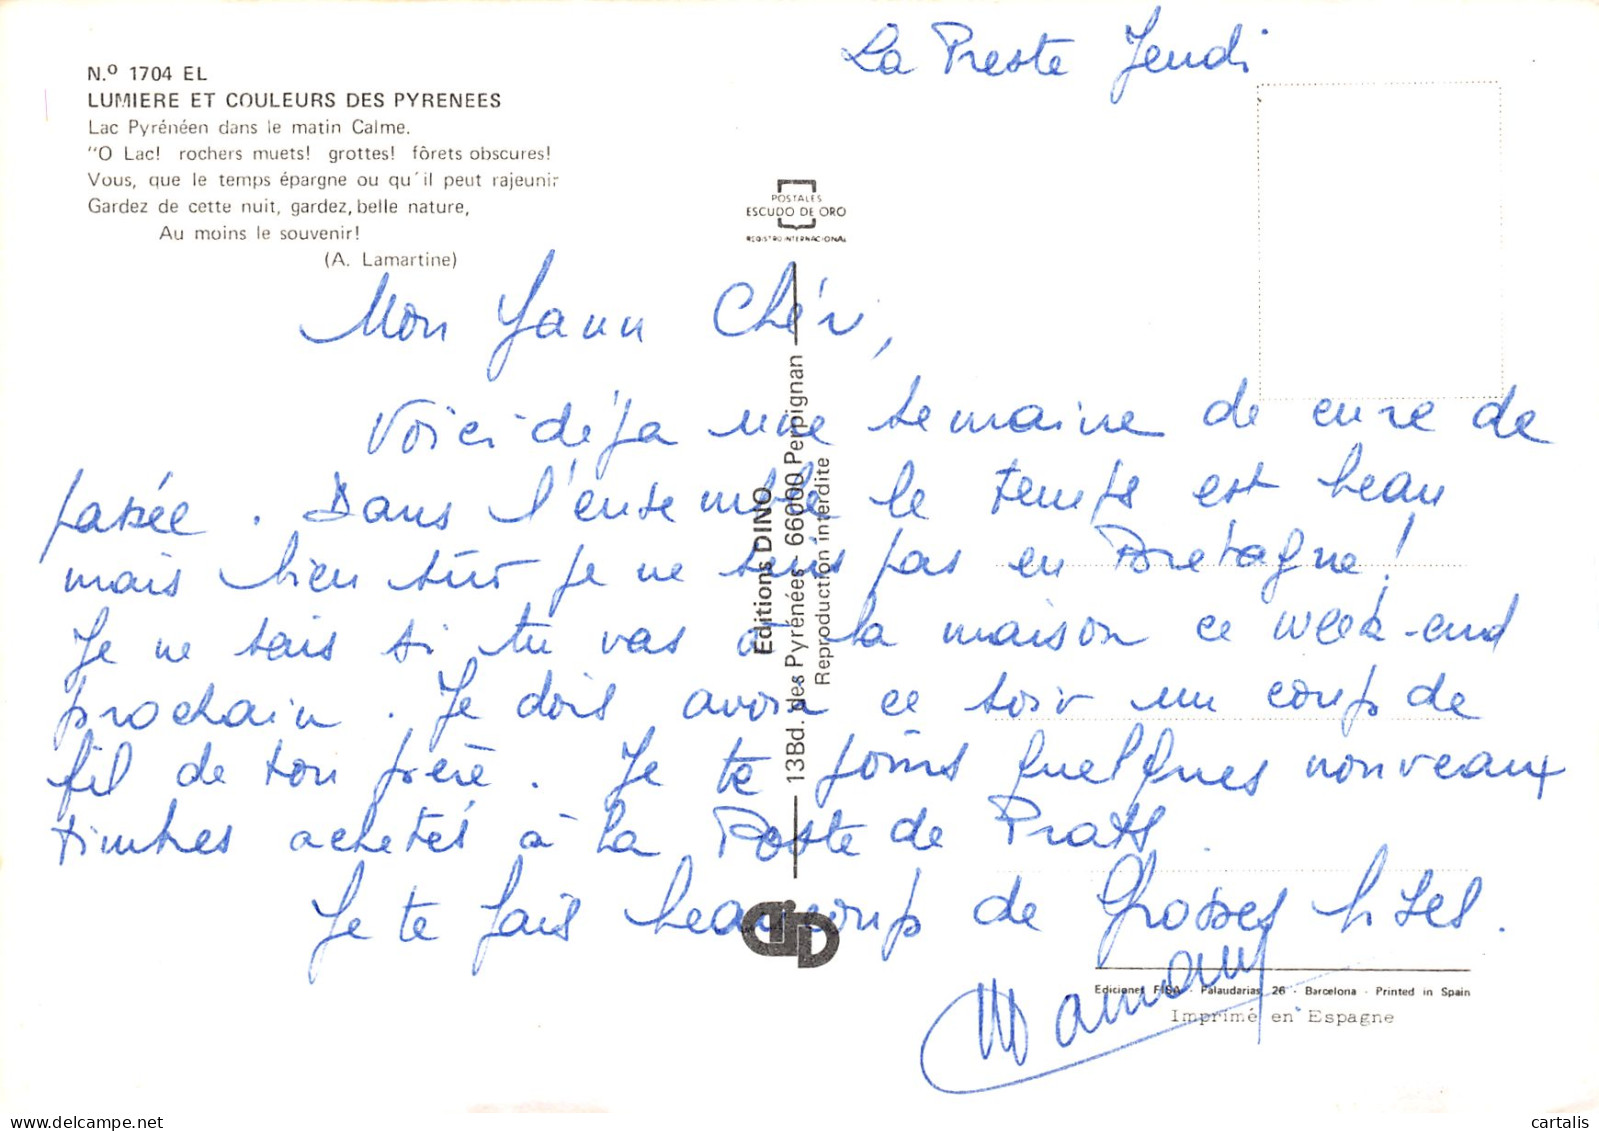 La Preste Jeudi
N.º 1704 EL
LUMIERE ET COULEURS DES PYRENEES
Lac Pyrénéen dans le matin Calme.
"O Lac! rochers muets! grottes! fôrets obscures!
Vous, que le temps épargne ou qu'il peut rajeunir
Gardez de cette nuit, gardez, belle nature,
Au moins le souvenir!
(A. Lamartine)
POSTALES
ESCUDO DE ORO
REGISTRO INTERNACIONAL
Mon Yann Chéri,
Voici déjà une semaine de cure de
passée. Dans l'ensemble le temps est beau
mais bien sûr je ne suis pas en Bretagne!
Je ne sais si tu vas à la maison ce week-end
prochain. Je dois avoir ce soir un coup de
fil de ton frère. Je te joins quelques nouveaux
timbres achetés à la Poste de Prats.
Je te fais beaucoup de Grosses bises.
Mamany
Editions DINO
13Bd. des Pyrénées - 66000 Perpignan
Reproduction interdite
D
Ediciones FISA - Palaudarias, 26 - Barcelona - Printed in Spain
Imprimé en Espagne
cartalis